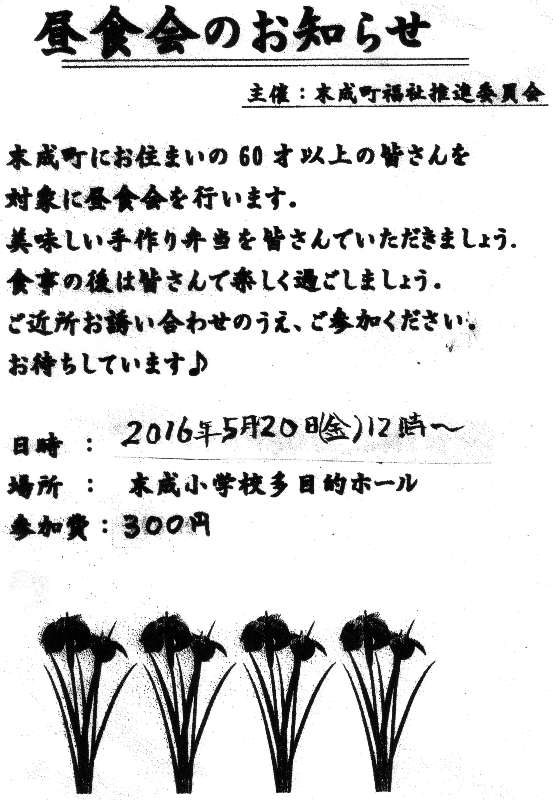 昼食会のお知らせ
主催：末成町福祉推進委員会
末成町にお住まいの60才以上の皆さんを
対象に昼食会を行います。
美味しい手作り弁当を皆さんでいただきましょう。
食事の後は皆さんで楽しく過ごしましょう。
ご近所お誘い合わせのうえ、ご参加ください。
お待ちしています♪
日時：2016年5月20日(金)12時〜
場所：末成小学校多目的ホール
参加費：300円